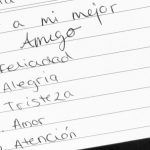 a mi mejor
Amigo
Felicidad
Alegria
Tristeza
Amor
Atención